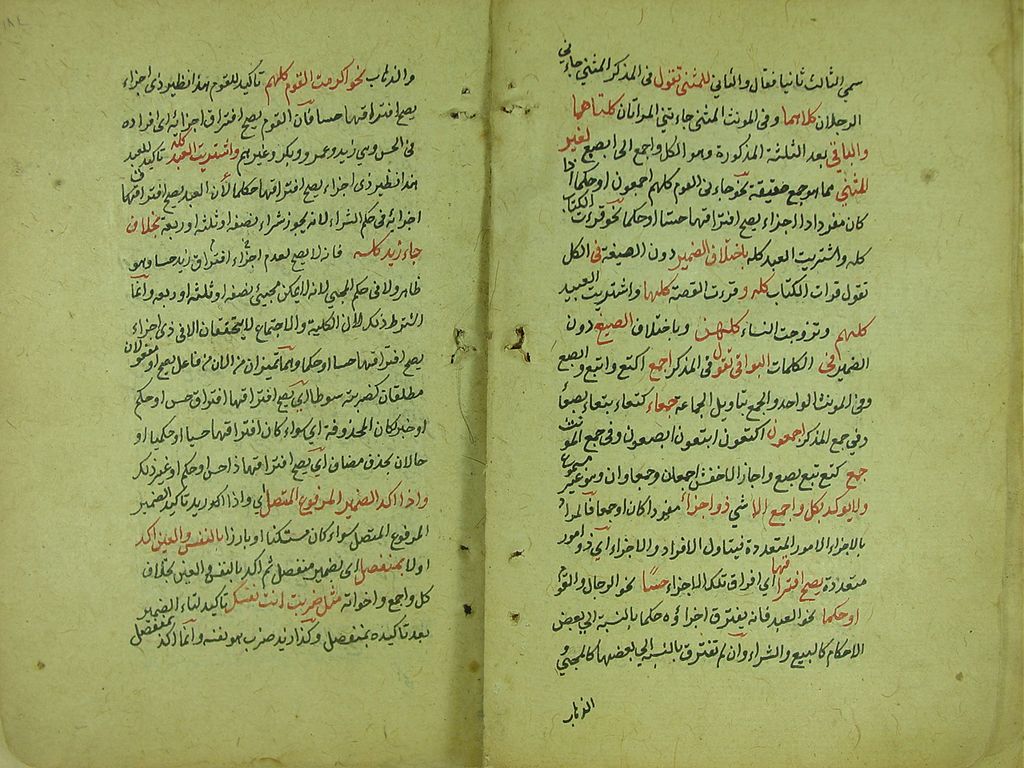 سمي الثالث ثانيا فقال والثاني للمثنى تقول في المذكر المثنى جاءني
الرجلان كلاهما وفي المونث المثنى جاءتني المراتان كلتاهما
والباقي بعد الثلثة المذكورة وهو الكل واجمع الى ابصع لغير
المثنى مما هو جمع حقيقة نحو جاءني القوم كلهم اجمعون او حكما اذا
كان مفردا ذا اجزاء يصح افتراقها حسا او حكما نحو قرءت الكتاب
كله واشتريت العبد كله باختلاف الضمير دون الصيغة في الكل
تقول قرات الكتاب كله وقرءت القصة كلها واشتريت العبيد
كلهم وتزوجت النساء كلهن وباختلاف الصيغ دون
الضمير في الكلمات البواقي تقول في المذكر اجمع اكتع وابتع وابصع
وفي المونث الواحد والجمع بتاويل الجماعة جمعاء كتعاء بتعاء بصعاء
وفي جمع المذكر اجمعون اكتعون ابتعون ابصعون وفي جمع المونث
جمع كتع بتع بصع واجاز الاخفش اجمعان وجمعاوان وهو غير مسموع
ولا يوكد بكل واجمع الا شي ذو اجزاء مفردا كان او جمعا فالمراد
بالاجزاء الامور المتعددة فيتناول الافراد والاجزاء اي ذو امور
متعددة يصح افتراقها اي افراق تلك الاجزاء حسا نحو الرجال والقوم
او حكما نحو العبد فانه يفترق اجزاؤه حكما بالنسبة الى بعض
الاحكام كالبيع والشراء وان لم تفترق بالنسبة الى بعضها كالمجيئ و
الذهاب
والذهاب نحو اكرمت القوم كلهم تاكيد للقوم هذا نظير ذي اجزاء
يصح افتراقها حسا فان القوم يصح افتراق اجزائه اي افراده
في الحس وهي زيد وعمرو وبكر وغيرهم واشتريت العبد كله تاكيد للعبد
هذا نظير ذي اجزاء يصح افتراقها حكما لان العبد يصح افتراق
اجزائه في حكم الشراء لانه يجوز شراء نصفه او ثلثه او ربعه بخلاف
جاء زيد كله فانه لا يصح لعدم اجزاء افتراق زيد حسا وهو
ظاهر ولا في حكم المجيئ لانه لا يمكن مجيئ نصفه او ثلثه او ربعه وانما
اشترط ذلك لان الكلية والاجتماع لا يتحققان الا في ذي اجزاء
يصح افتراقها حسا او حكما وهما تميزان من فاعل يصح او مفعولان
مطلقان كضربته سوطا اي يصح افتراقها افتراق حس او حكم
او خبر لكان المحذوفة اي سواء كان افتراقها حسيا او حكميا او
حالان بحذف مضاف اي يصح افتراقها ذا حس او حكم او غير ذلك
واذا اكد الضمير المرفوع المتصل اي واذا اكد اوريد تاكيد الضمير
المرفوع المتصل سواء كان مستكنا او بارزا بالنفس والعين اكد
اولا بمنفصل اي لضمير منفصل ثم اكد بالنفس والعين بخلاف
كل واجمع واخواته مثل ضربت انت نفسك تاكيد لتاء الضمير
بعد تاكيده بمنفصل وكذا زيد ضرب هو نفسه وانما اكد بمنفصل